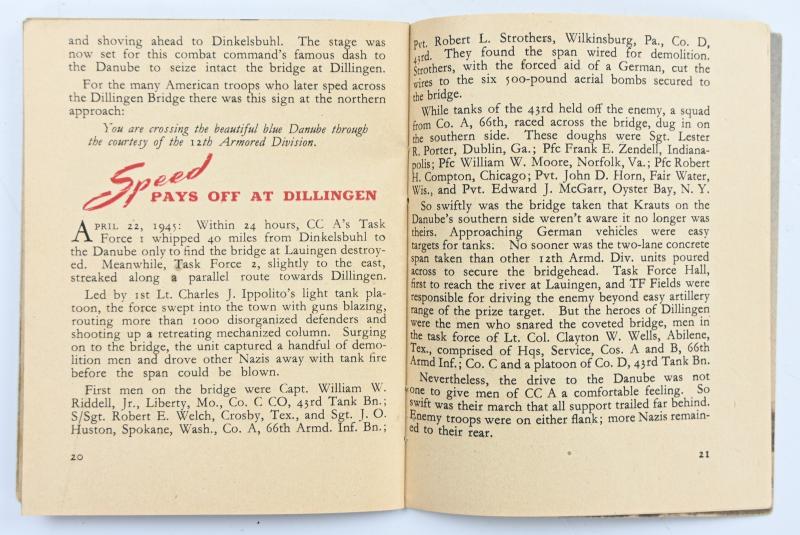 and shoving ahead to Dinkelsbuhl. The stage was
now set for this combat command's famous dash to
the Danube to seize intact the bridge at Dillingen.
For the many American troops who later sped across
the Dillingen Bridge there was this sign at the northern
approach:
You are crossing the beautiful blue Danube through
the courtesy of the 12th Armored Division.
Speed
PAYS OFF AT DILLINGEN
APRIL 22, 1945: Within 24 hours, CC A's Task
Force 1 whipped 40 miles from Dinkelsbuhl to
the Danube only to find the bridge at Lauingen destroy-
ed. Meanwhile, Task Force 2, slightly to the east,
streaked along a parallel route towards Dillingen.
Led by 1st Lt. Charles J. Ippolito's light tank pla-
toon, the force swept into the town with guns blazing,
routing more than 1000 disorganized defenders and
shooting up a retreating mechanized column. Surging
on to the bridge, the unit captured a handful of demo-
lition men and drove other Nazis away with tank fire
before the span could be blown.
First men on the bridge were Capt. William W.
Riddell, Jr., Liberty, Mo., Co. C CO, 43rd Tank Bn.;
S/Sgt. Robert E. Welch, Crosby, Tex., and Sgt. J. O.
Huston, Spokane, Wash., Co. A, 66th Armd. Inf. Bn.;
20
Pvt. Robert L. Strothers, Wilkinsburg, Pa., Co. D,
43rd. They found the span wired for demolition.
Strothers, with the forced aid of a German, cut the
wires to the six 500-pound aerial bombs secured to
the bridge.
While tanks of the 43rd held off the enemy, a squad
from Co. A, 66th, raced across the bridge, dug in on
the southern side. These doughs were Sgt. Lester
R. Porter, Dublin, Ga.; Pfc Frank E. Zendell, Indiana-
polis; Pfc William W. Moore, Norfolk, Va.; Pfc Robert
H. Compton, Chicago; Pvt. John D. Horn, Fair Water,
Wis., and Pvt. Edward J. McGarr, Oyster Bay, N. Y.
So swiftly was the bridge taken that Krauts on the
Danube's southern side weren't aware it no longer was
theirs. Approaching German vehicles were easy
targets for tanks. No sooner was the two-lane concrete
span taken than other 12th Armd. Div. units poured
across to secure the bridgehead. Task Force Hall,
first to reach the river at Lauingen, and TF Fields were
responsible for driving the enemy beyond easy artillery
range of the prize target. But the heroes of Dillingen
were the men who snared the coveted bridge, men in
the task force of Lt. Col. Clayton W. Wells, Abilene,
Tex., comprised of Hqs, Service, Cos. A and B, 66th
Armd Inf.; Co. C and a platoon of Co. D, 43rd Tank Bn.
Nevertheless, the drive to the Danube was not
one to give men of CC A a comfortable feeling. So
swift was their march that all support trailed far behind.
Enemy troops were on either flank; more Nazis remain-
ed to their rear.
21